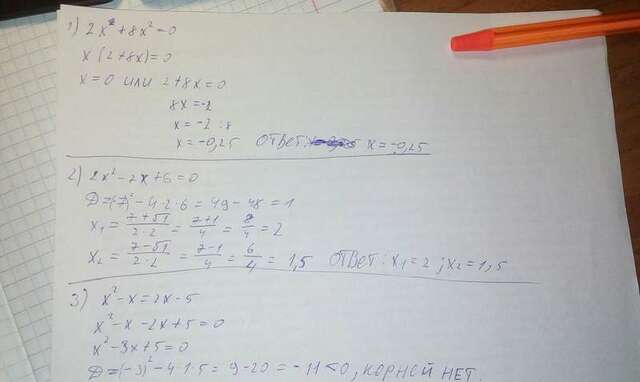 1) 2x² + 8x² = 0
x (2 + 8x) = 0
x = 0 или 2 + 8x = 0
8x = -2
x = -2 : 8
x = -0,25 ответ: x = -0,25
2) 2x² - 2x + 6 = 0
D = (7)² - 4 · 2 · 6 = 49 - 48 = 1
x₁ = (7+√1)/(2·2) = (7+1)/4 = 8/4 = 2
x₂ = (7-√1)/(2·2) = (7-1)/4 = 6/4 = 1,5 ответ: x₁ = 2 ; x₂ = 1,5
3) x² - x = 2x - 5
x² - x - 2x + 5 = 0
x² - 3x + 5 = 0
D = (-3)² - 4 · 1 · 5 = 9 - 20 = -11 < 0, корней нет.